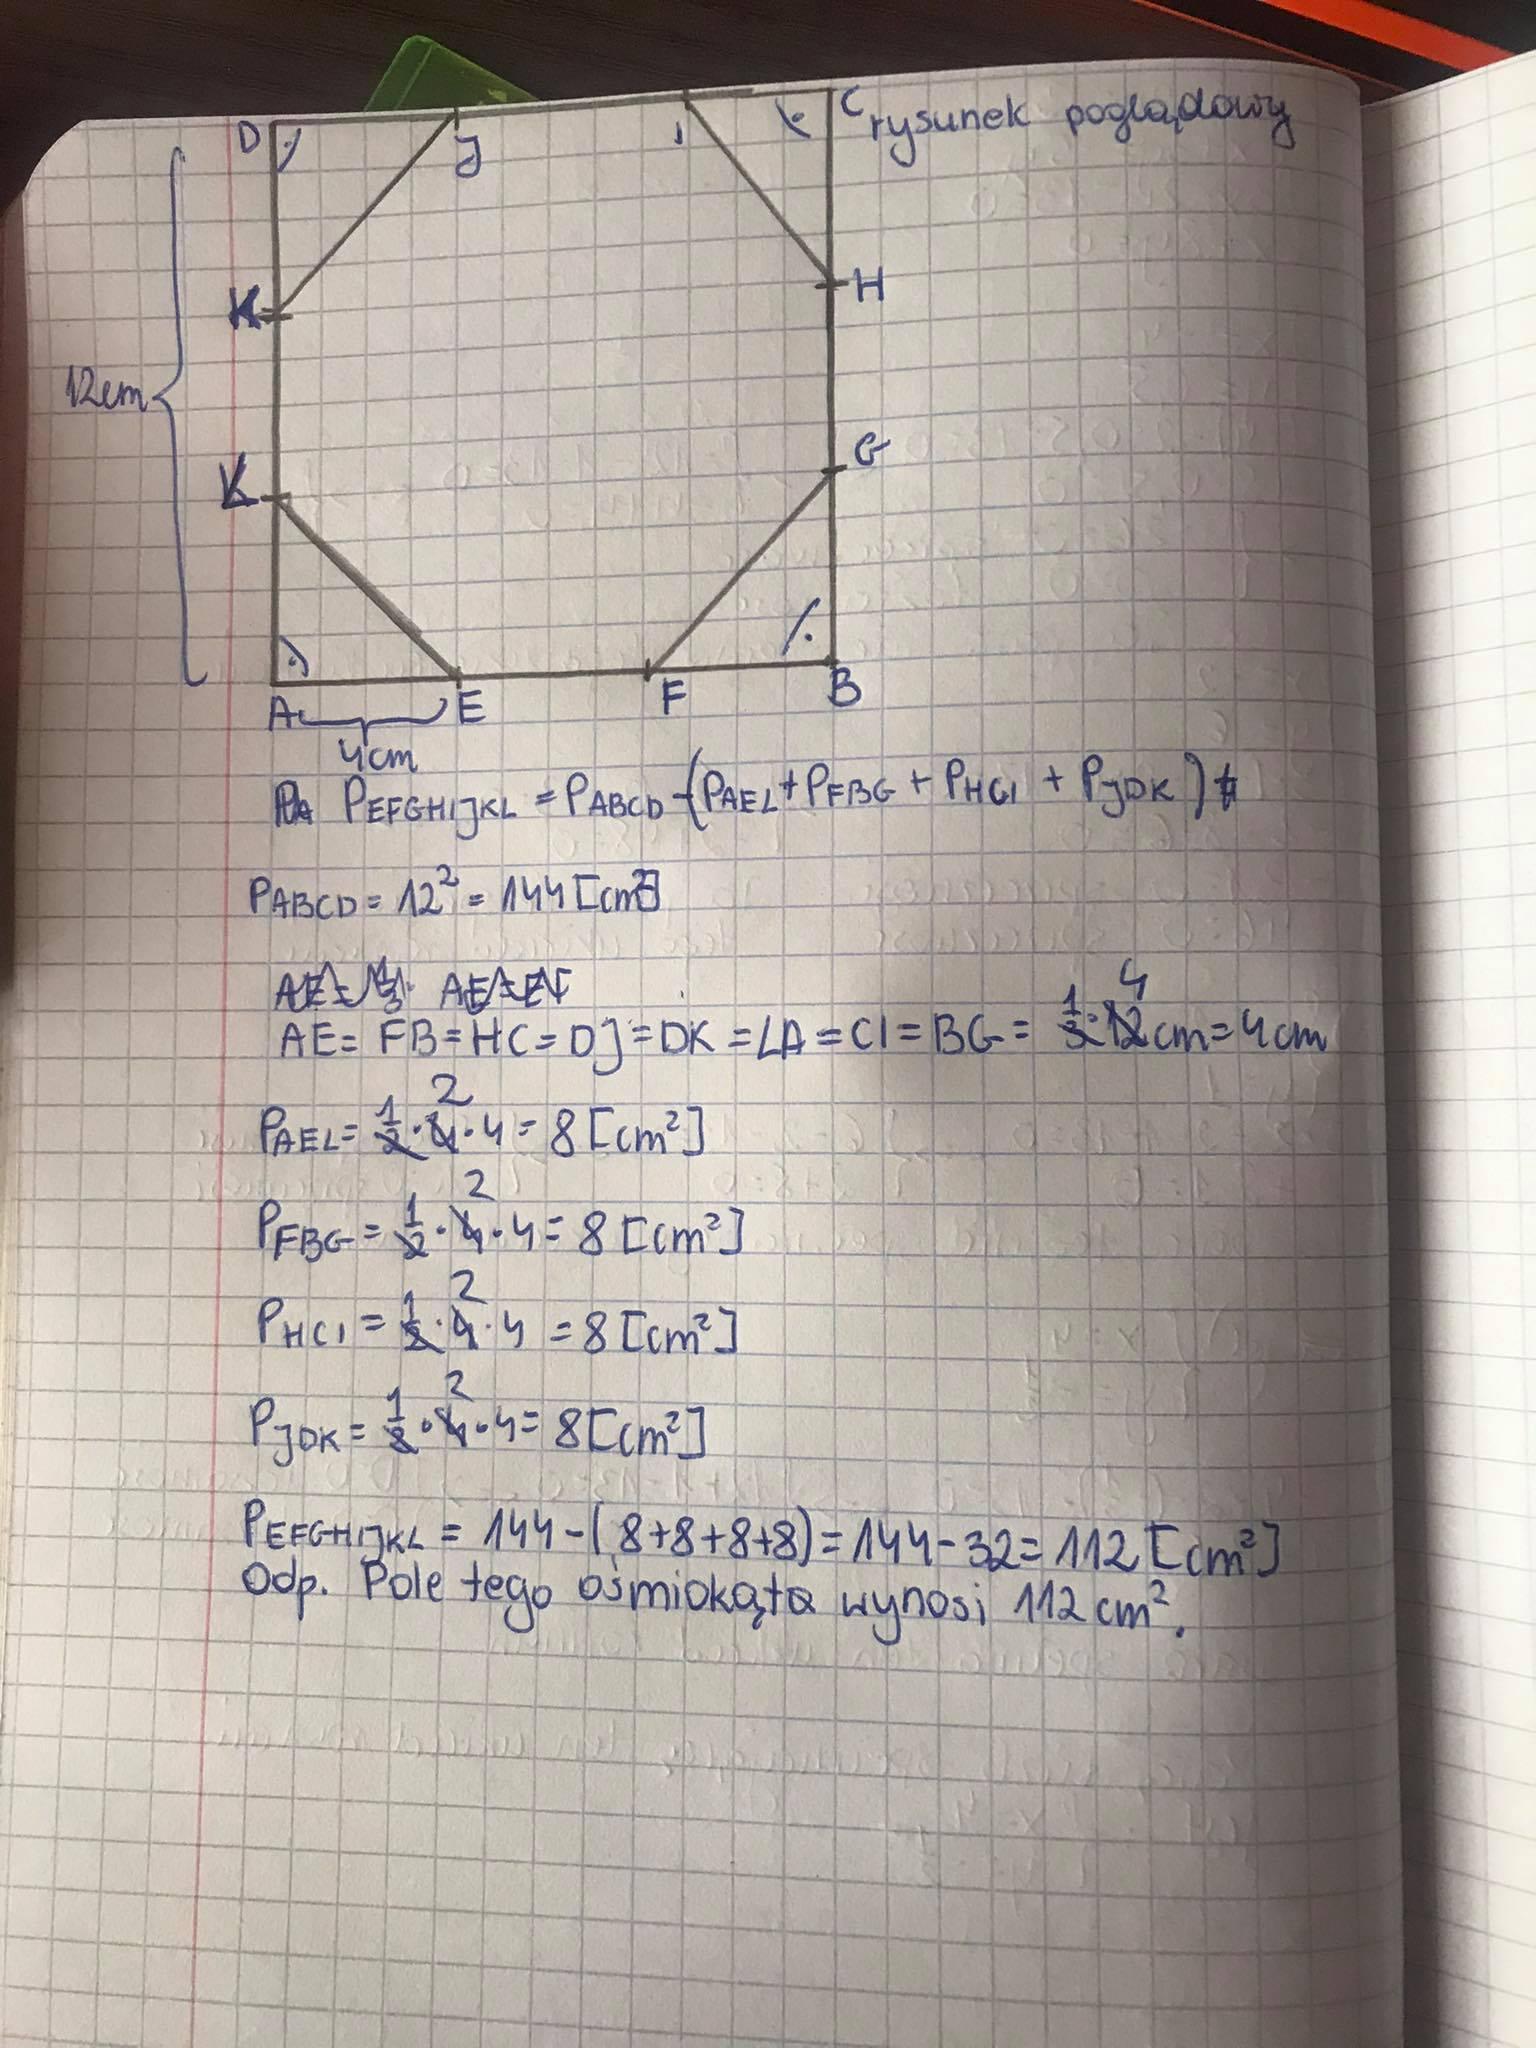 D J I C rysunek poglądowy
K H
12cm
K G
A E F B
4cm
PEFGHIJKL = PABCD - (PAEL + PFBG + PHCI + PJDK)
PABCD = 12² = 144 [cm²]
AE = FB = HC = DJ = DK = LA = CI = BG = 1/3 · 12 cm = 4 cm
4
PAEL = 1/2 · 4 · 4 = 8 [cm²]
2
PFBG = 1/2 · 4 · 4 = 8 [cm²]
2
PHCI = 1/2 · 4 · 4 = 8 [cm²]
2
PJDK = 1/2 · 4 · 4 = 8 [cm²]
2
PEFGHIJKL = 144 - (8+8+8+8) = 144 - 32 = 112 [cm²]
Odp. Pole tego ośmiokąta wynosi 112 cm².